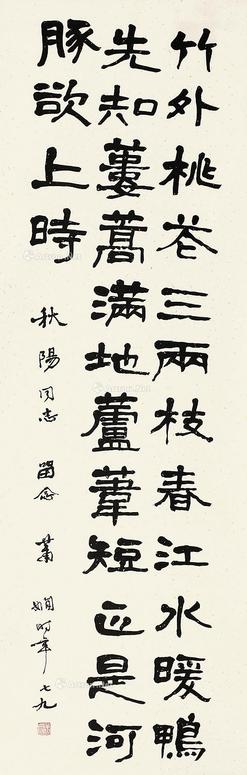 竹外桃花三兩枝春江水暖鴨
先知蔞蒿滿地蘆葦短正是河
豚欲上時
秋陽同志 留念 蕭嫻時年七九